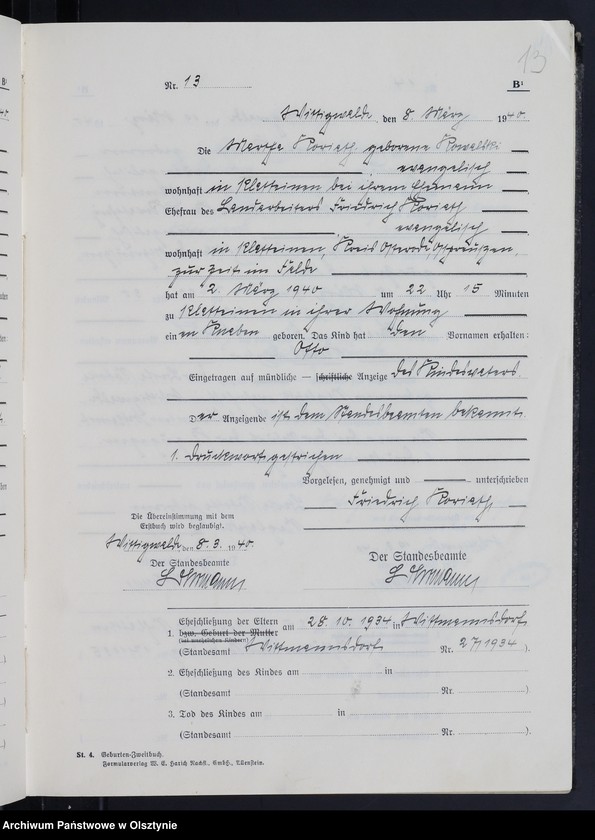 13
Nr. 13 B¹
Wittigwalde, den 8. März 1940.
Die Martha Koriath geborene Kowalski
evangelisch
wohnhaft in Kletteinen bei ihrem Ehemann
Ehefrau des Landarbeiters Friedrich Koriath
evangelisch
wohnhaft in Kletteinen, Kreis Osterode, Ostpreußen,
zur Zeit im Felde
hat am 2. März 1940 um 22 Uhr 15 Minuten
zu Kletteinen in ihrer Wohnung
einen Knaben geboren. Das Kind hat den Vornamen erhalten:
Otto
Eingetragen auf mündliche — schriftliche Anzeige des Kindesvaters.
Der Anzeigende ist dem Standesbeamten bekannt.
1. Druckwort gestrichen
Vorgelesen, genehmigt und unterschrieben
Friedrich Koriath
Die Übereinstimmung mit dem
Erstbuch wird beglaubigt.
Wittigwalde den 8. 3. 1940.
Der Standesbeamte
Der Standesbeamte
Eheschließung der Eltern
1. bzw. Geburt der Mutter am 28. 10. 1934 in Wittmannsdorf
(bei unehelichen Kindern)
(Standesamt Wittmannsdorf Nr. 27/1934 ).
2. Eheschließung des Kindes am in
(Standesamt Nr. )
3. Tod des Kindes am in
(Standesamt Nr. )
St. 4. Geburten-Zweitbuch.
Formularverlag W. E. Harich Nachf., GmbH., Allenstein.
Archiwum Państwowe w Olsztynie